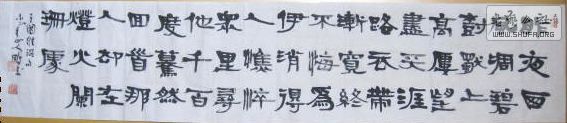 夜西
凋碧
樹獨上
高樓望
盡天涯
路衣帶
漸寬終
不悔為
伊消得
人憔悴
衆里尋
他千百
度驀然
回首那
人却在
燈火闌
珊處
WWW.SHUFA.ORG